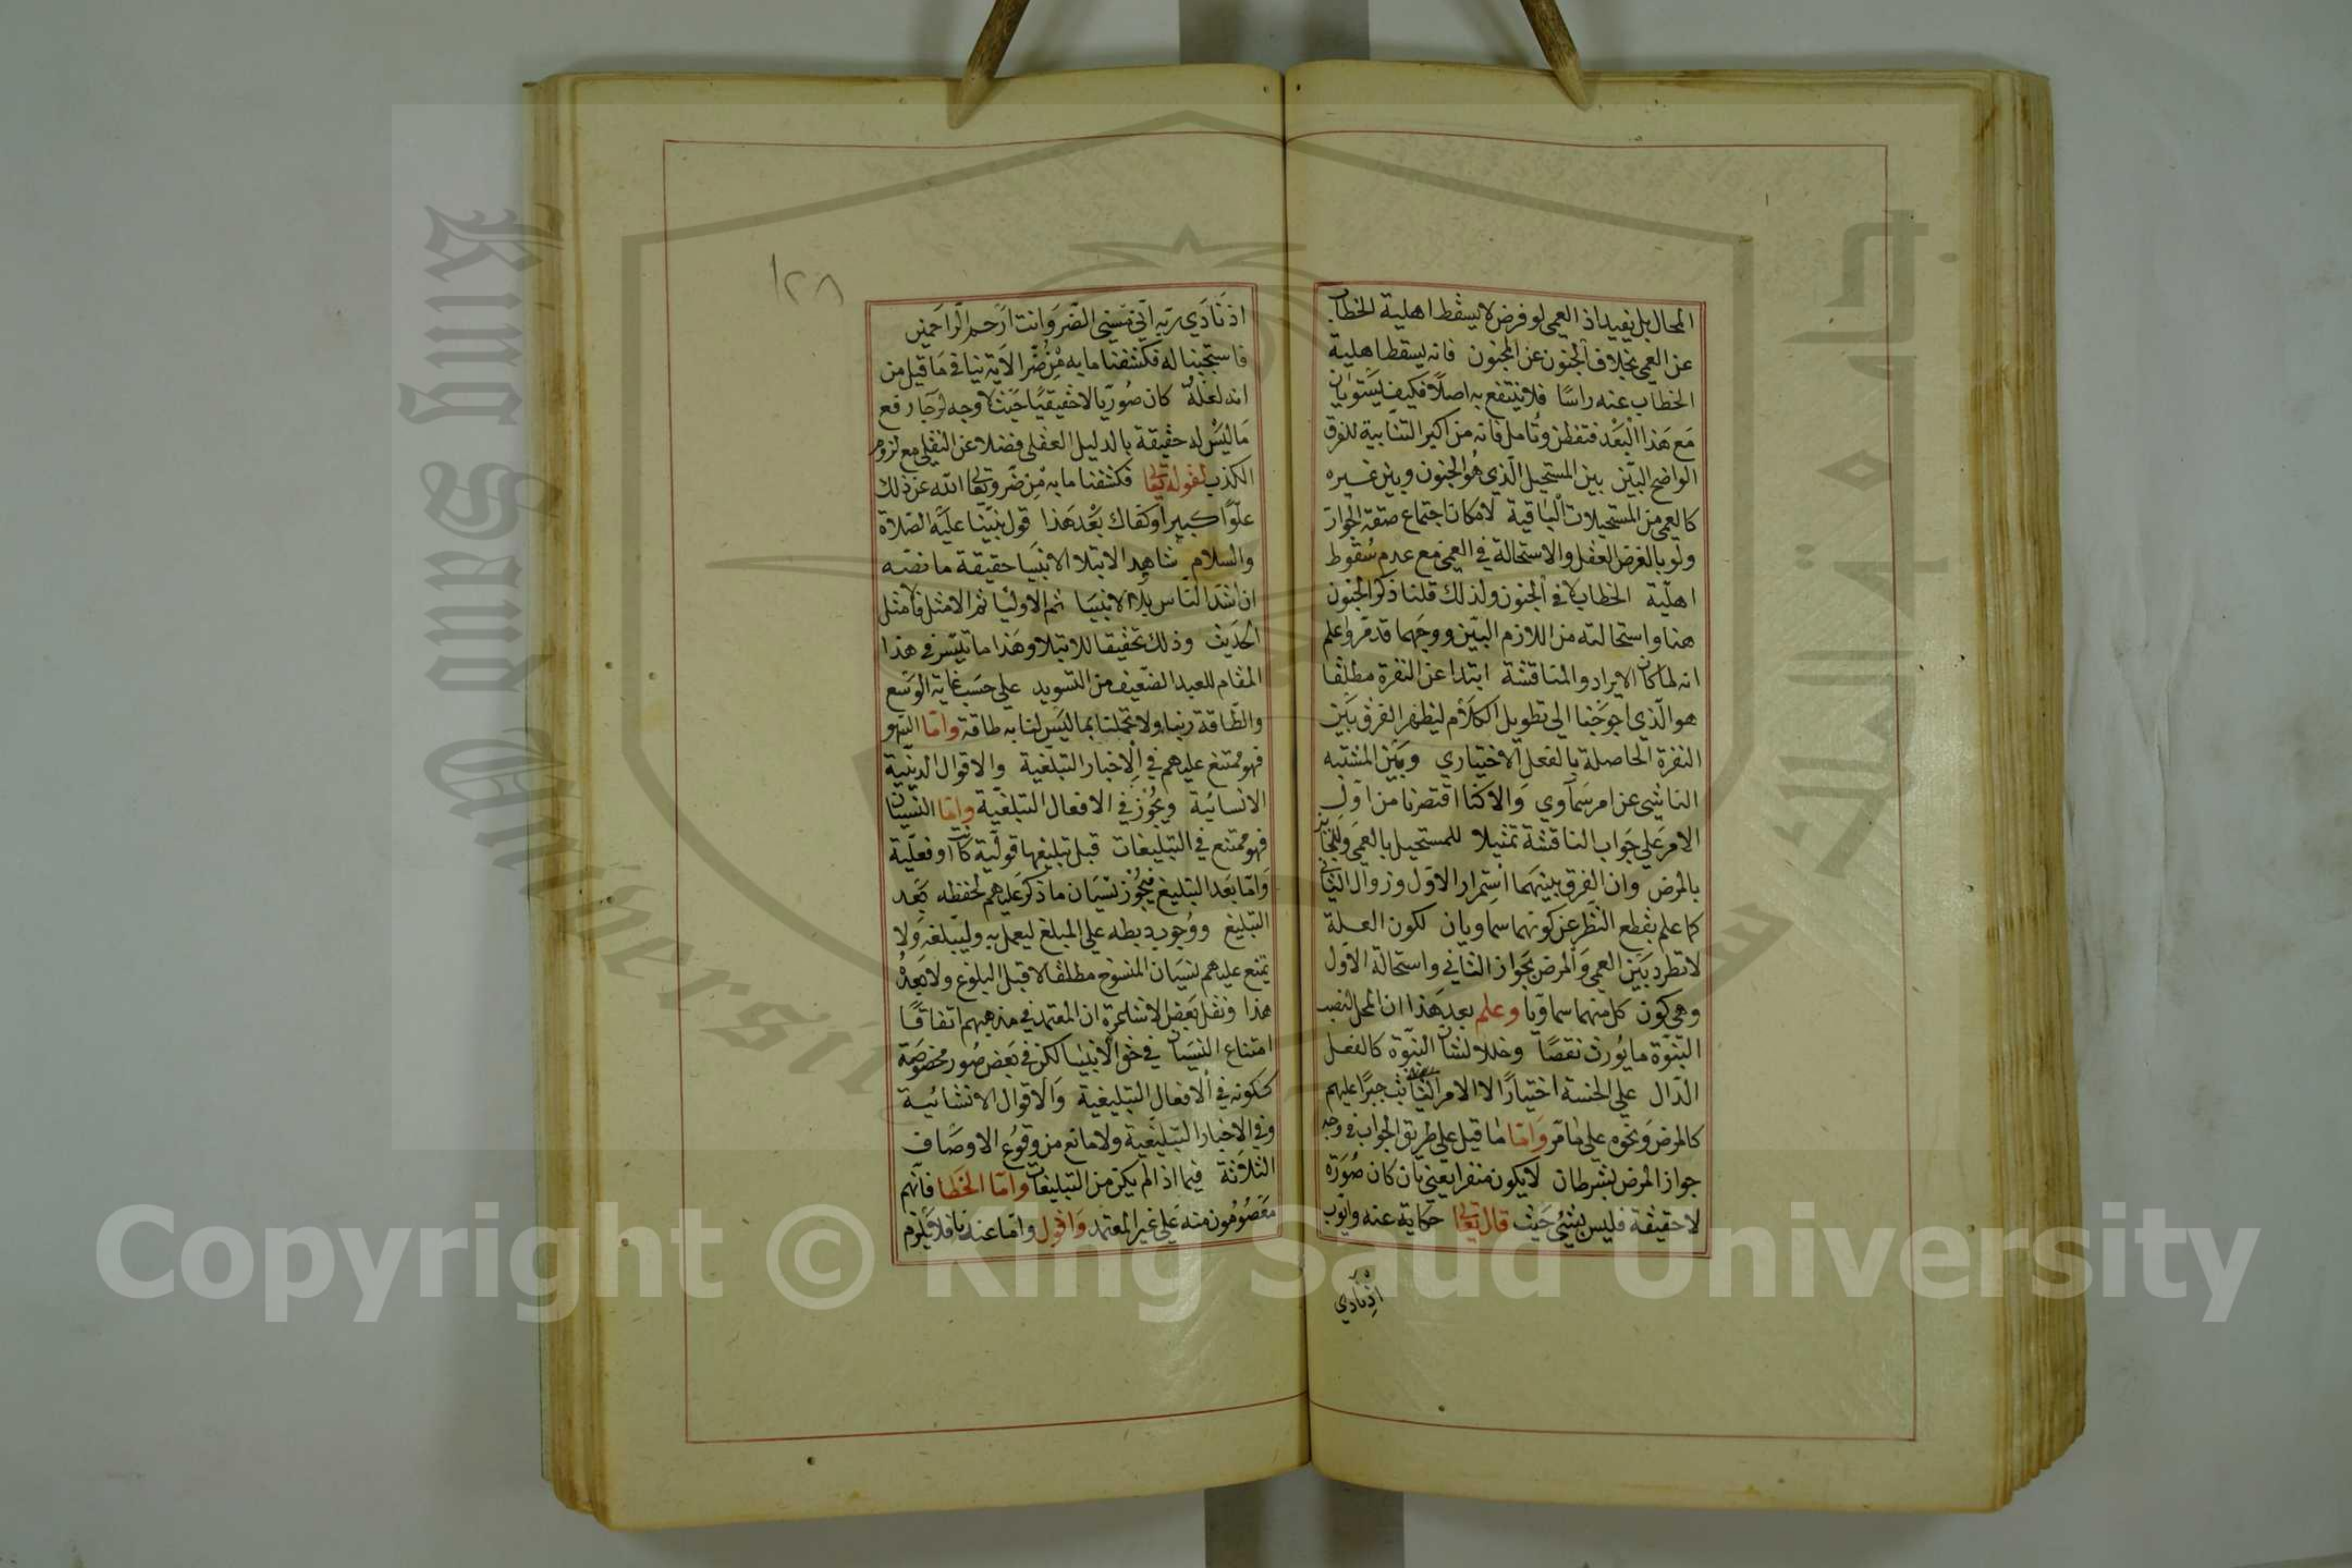 المحال بل يفيد اذ العمى لو فرض لا يسقط اهلية الخطاب
عن العمى بخلاف الجنون عن المجنون فانه يسقط اهلية
الخطاب عنه راسًا فلا ينتفع به اصلًا فكيف يستويان
مع هذا البعد فتفطن وتامل فانه من اكبر التنابيه للفرق
الواضح البيّن بين المستحيل الّذي هو الجنون وبين غيره
كالعمى من المستحيلات الباقية لامكان اجتماع صفة الجواز
ولو بالفرض العقل والاستحالة في العمى مع عدم سقوط
اهليّة الخطاب لا في الجنون ولذلك قلنا ذكر الجنون
هنا واستحالته من اللازم البيّن ووجهما قد مر واعلم
انه لما كان الايراد والمناقشة ابتدا عن النفرة مطلقا
هو الّذي احوجنا الى تطويل الكلام ليظهر الفرق بين
النفرة الحاصلة بالفعل الاختياري وبين المشتبه
الناشي عن امر سماوي والا كنا اقتصرنا من اول
الامر على جواب الناقشة تمثيلا للمستحيل بالعمى وللجائز
بالمرض وان الفرق بينهما استمرار الاول وزوال الثاني
كما علم بقطع النظر عن كونهما سماويان لكون العلة
لا تطرد بين العمى والمرض بجواز الثاني واستحالة الاول
وهي كون كل منهما سماويا وعلم بعد هذا ان المحل لنصب
النبوّة ما يورث نقصًا وخللا لشان النبوّة كالفعل
الدّال على الخسة اختيارًا لا الامر الثابت جبرًا عليهم
كالمرض ونحوه على ما مر وامّا ما قيل على طريق الجواب في وجه
جواز المرض بشرط ان لا يكون منفرا يعني بان كان صورة
لا حقيقة فليس بشيء حيث قال تعالى حكاية عنه وايّوب
اذ نادي
١٢٨
اذ نادي ربه اني مسّني الضر وانت ارحم الراحمين
فاستجبنا له فكشفنا ما به من ضر الاية ينافي ما قيل من
انه لعله كان صوريّا لا حقيقيًا حيث لا وجه لرجا رفع
ما ليس له حقيقة بالدليل العقلي فضلا عن النقلي مع لزوم
الكذب لقوله تعالى فكشفنا ما به من ضر وتعالى الله عن ذلك
علوًا كبيرا وكفاك بعد هذا قول نبيّنا عليه الصّلاة
والسلام شاهدا لابتلا الانبيا حقيقة ما نصّه
ان اشد الناس بلاء الانبيا ثم الاوليا ثم الامثل فالامثل
الحديث وذلك تحقيقا للابتلا وهذا ما تيسّر في هذا
المقام للعبد الضعيف من التسويد على حسب غاية الوسع
والطّاقة ربنا ولا تحملنا بما ليس لنا به طاقة وامّا السهو
فهو ممتنع عليهم في الاخبار التبلغية والاقوال الدينّية
الانسائية ويجوز في الافعال التبلغيّة وامّا النسيان
فهو ممتنع في التبليغات قبل تبليغها قوليّة كانت او فعليّة
وامّا بعد التبليغ فيجوز نسيان ما ذكر عليهم لحفظه بعد
التبليغ ووجوب ضبطه على المبلغ ليعمل به وليبلغه ولا
يمتنع عليهم نسيان المنسوخ مطلقا لا قبل البلوغ ولا بعده
هذا ونقل بعض الاشاعرة ان المعتمد في مذهبهم اتفاقًا
امتناع النسيان في حق الانبيا لكن في بعض صور مخصوصة
ككونه في الافعال التبليغية والاقوال الانشائية
وفي الاخبار التبليغية ولا مانع من وقوع الاوصاف
الثلاثة فيما اذ الم يكن من التبليغات وامّا الخطا فانّهم
معصومون منه على غير المعتمد واقول وامّا عندنا فلا يلزم
Copyright © King Saud University
King Saud University